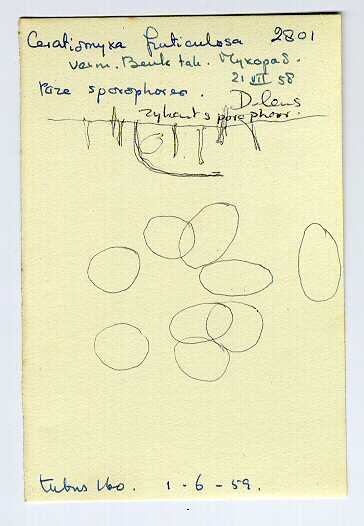 Ceratiomyxa fruticulosa 2801
verm. Beuk tak.
21 VII 58
rare sporophoren. D-lens
zijkant sporophoor.
tubus 160. 1-6-59.